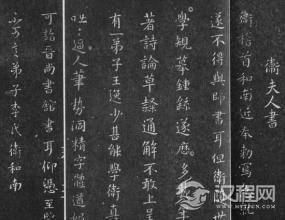 衛夫人書
衛稽首和南近奉勅寫
遂不得與師書耳但衛隨世
學規摹鍾繇遂歷多載年
著詩論草隸通解不敢上呈
有一弟子王逸少甚能學衛真
咄咄逼人筆勢洞精字體遒媚
可詣晉尚書館書耳仰憑至鑒
不可言弟子李氏衛和南
汉程网